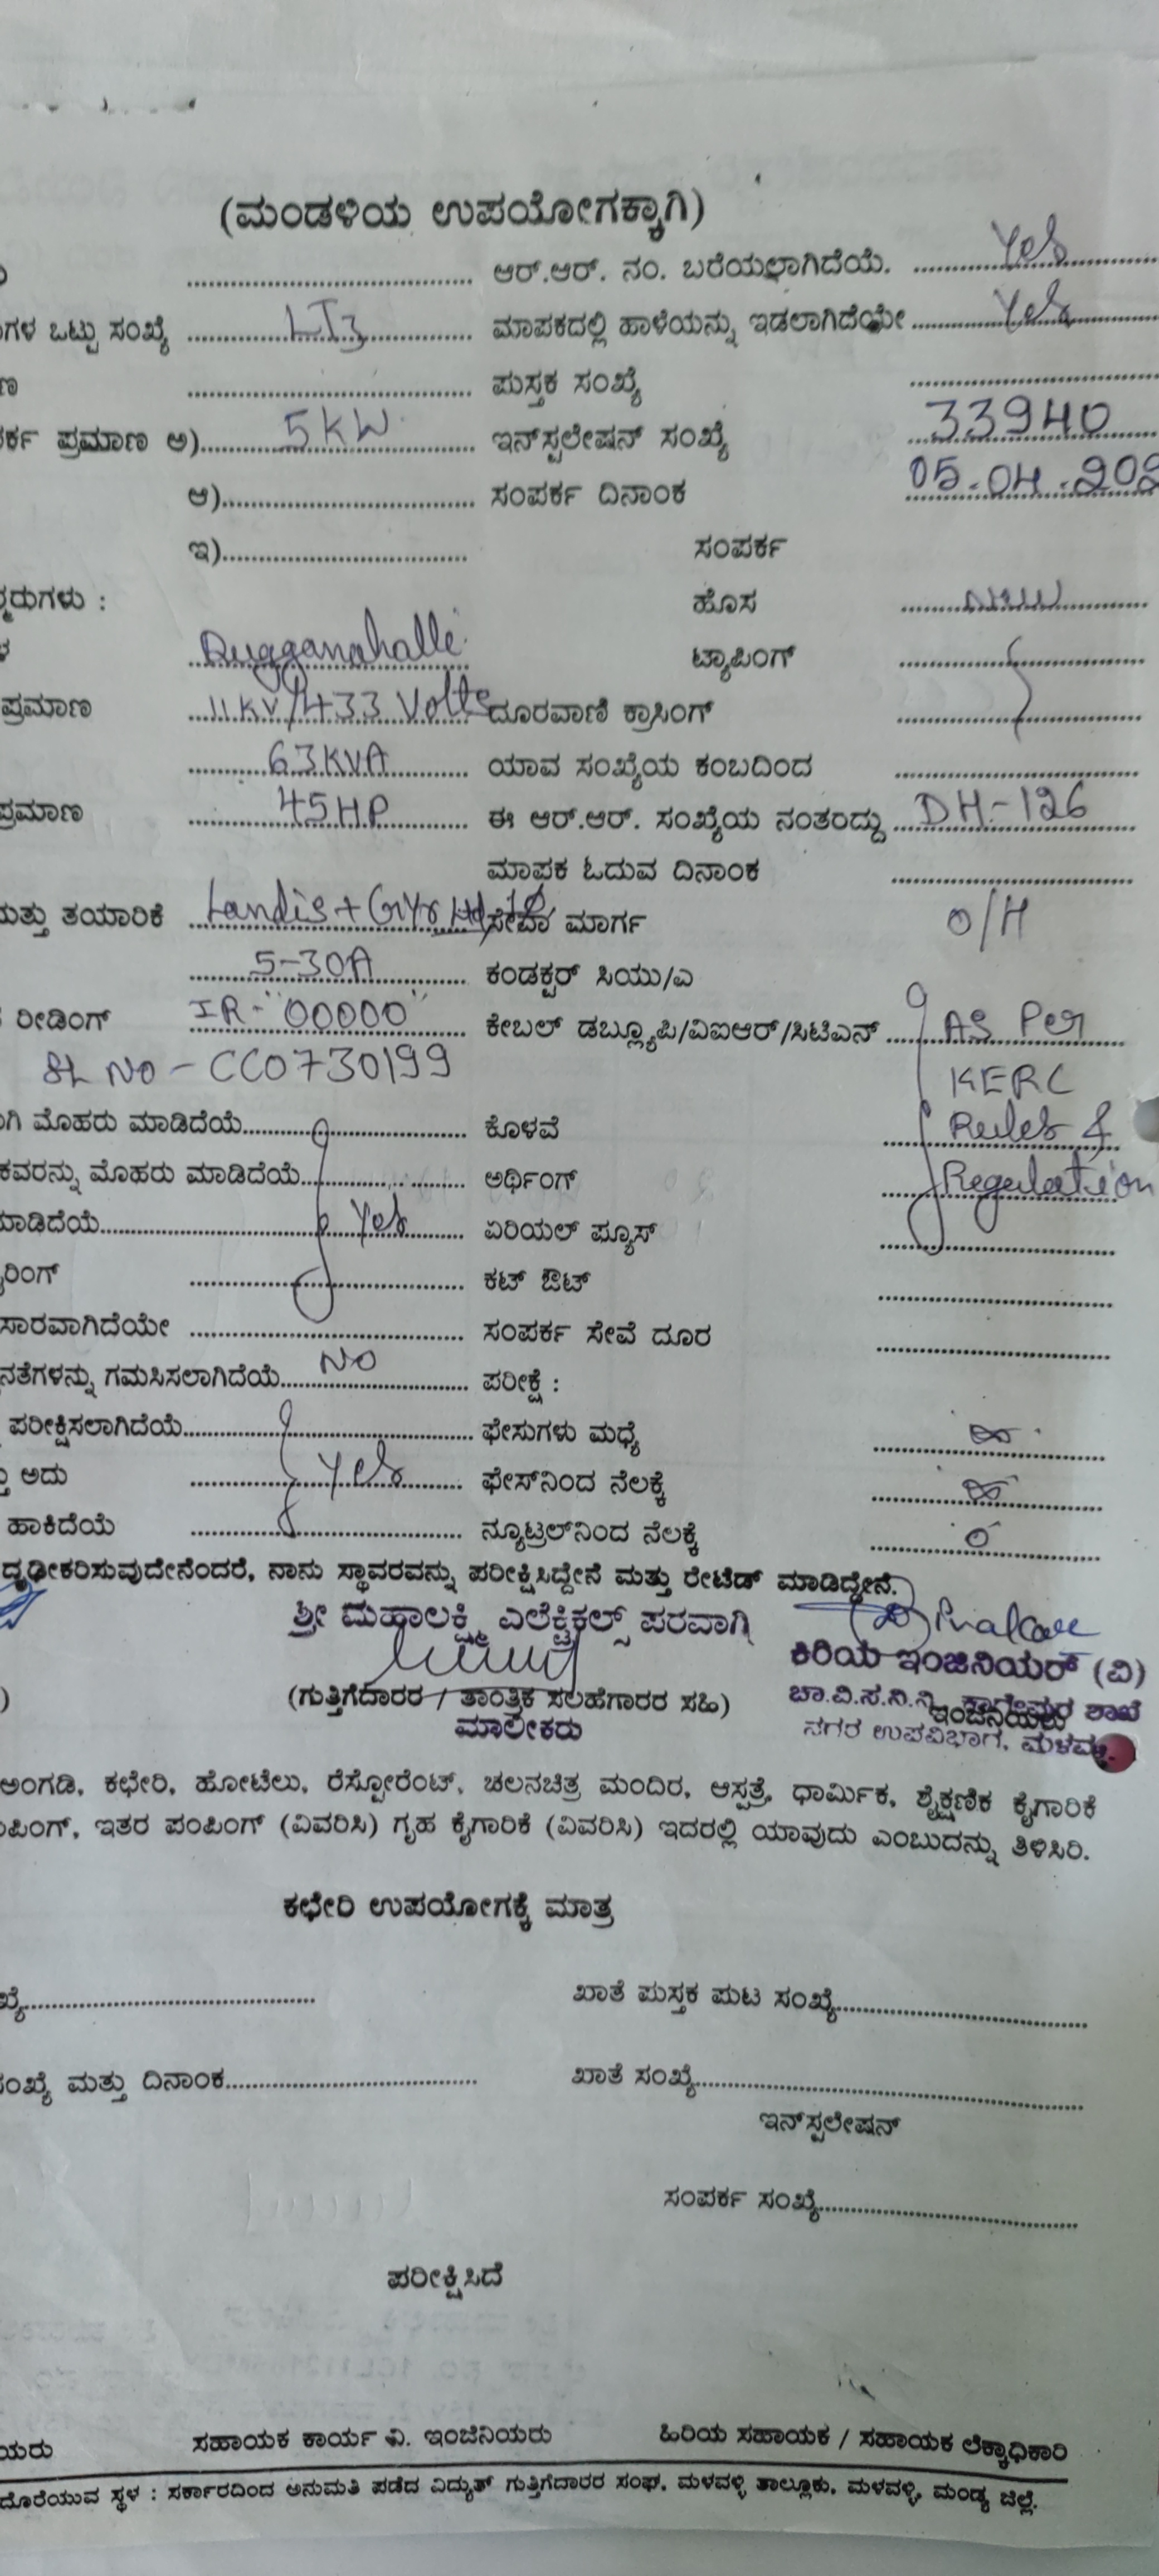 (ಮಂಡಳಿಯ ಉಪಯೋಗಕ್ಕಾಗಿ)
.................... ಆರ್.ಆರ್. ನಂ. ಬರೆಯಲಾಗಿದೆಯೆ. Yes
ಗಳ ಒಟ್ಟು ಸಂಖ್ಯೆ LT3 ಮಾಪಕದಲ್ಲಿ ಹಾಳೆಯನ್ನು ಇಡಲಾಗಿದೆಯೇ Yes
.................... ಪುಸ್ತಕ ಸಂಖ್ಯೆ ....................
ಪ್ರಮಾಣ ಅ) 5 KW ಇನ್‌ಸ್ಪಲೇಷನ್ ಸಂಖ್ಯೆ 33940
ಆ).................... ಸಂಪರ್ಕ ದಿನಾಂಕ 05.04.202
ಇ).................... ಸಂಪರ್ಕ
ರುಗಳು : ಹೊಸ New
Dugganahalli ಟ್ಯಾಪಿಂಗ್ ....................
ಪ್ರಮಾಣ 11KV/433 Volts ದೂರವಾಣಿ ಕ್ರಾಸಿಂಗ್ ....................
63KVA ಯಾವ ಸಂಖ್ಯೆಯ ಕಂಬದಿಂದ ....................
ಪ್ರಮಾಣ 45 H.P ಈ ಆರ್.ಆರ್. ಸಂಖ್ಯೆಯ ನಂತರದ್ದು DH-126
ಮಾಪಕ ಓದುವ ದಿನಾಂಕ ....................
ಮತ್ತು ತಯಾರಿಕೆ Landis + Gyr ಸೇವಾ ಮಾರ್ಗ O/H
5-30A ಕಂಡಕ್ಟರ್ ಸಿಯು/ಎ
ರೀಡಿಂಗ್ IR-"00000" ಕೇಬಲ್ ಡಬ್ಲ್ಯೂಪಿ/ವಿಐಆರ್/ಸಿಟಿಎನ್ AS Per
SL NO - CC0730199 KERC
ಗಿ ಮೊಹರು ಮಾಡಿದೆಯೆ.................... ಕೊಳವೆ Rules &
ಕವರನ್ನು ಮೊಹರು ಮಾಡಿದೆಯೆ.................... ಅರ್ಥಿಂಗ್ Regulation
ಮಾಡಿದೆಯೆ Yes ಏರಿಯಲ್ ಫ್ಯೂಸ್ ....................
ರಿಂಗ್ .................... ಕಟ್ ಔಟ್ ....................
ಸಾರವಾಗಿದೆಯೇ .................... ಸಂಪರ್ಕ ಸೇವೆ ದೂರ ....................
ನತೆಗಳನ್ನು ಗಮಸಿಸಲಾಗಿದೆಯೆ NO ಪರೀಕ್ಷೆ :
ಪರೀಕ್ಷಿಸಲಾಗಿದೆಯೆ.................... ಫೇಸುಗಳು ಮಧ್ಯೆ ∞
ಅದು Yes ಫೇಸ್‌ನಿಂದ ನೆಲಕ್ಕೆ ∞
ಹಾಕಿದೆಯೆ .................... ನ್ಯೂಟ್ರಲ್‌ನಿಂದ ನೆಲಕ್ಕೆ 0
ದೃಢೀಕರಿಸುವುದೇನೆಂದರೆ, ನಾನು ಸ್ಥಾವರವನ್ನು ಪರೀಕ್ಷಿಸಿದ್ದೇನೆ ಮತ್ತು ರೇಟೆಡ್ ಮಾಡಿದ್ದೇನೆ.
ಶ್ರೀ ಮಹಾಲಕ್ಷ್ಮಿ ಎಲೆಕ್ಟ್ರಿಕಲ್ಸ್ ಪರವಾಗಿ
ಕಿರಿಯ ಇಂಜಿನಿಯರ್ (ವಿ)
(ಗುತ್ತಿಗೆದಾರರ / ತಾಂತ್ರಿಕ ಸಲಹೆಗಾರರ ಸಹಿ) ಚಾ.ವಿ.ಸ.ನಿ.ನಿ. ಶಾಖೆ
ಮಾಲೀಕರು ನಗರ ಉಪವಿಭಾಗ, ಮಳವಳ್ಳಿ
ಅಂಗಡಿ, ಕಛೇರಿ, ಹೋಟೆಲು, ರೆಸ್ಟೋರೆಂಟ್, ಚಲನಚಿತ್ರ ಮಂದಿರ, ಆಸ್ಪತ್ರೆ, ಧಾರ್ಮಿಕ, ಶೈಕ್ಷಣಿಕ ಕೈಗಾರಿಕೆ
ಪಿಂಗ್, ಇತರ ಪಂಪಿಂಗ್ (ವಿವರಿಸಿ) ಗೃಹ ಕೈಗಾರಿಕೆ (ವಿವರಿಸಿ) ಇದರಲ್ಲಿ ಯಾವುದು ಎಂಬುದನ್ನು ತಿಳಿಸಿರಿ.
ಕಛೇರಿ ಉಪಯೋಗಕ್ಕೆ ಮಾತ್ರ
ಖ್ಯೆ.................... ಖಾತೆ ಪುಸ್ತಕ ಪುಟ ಸಂಖ್ಯೆ....................
ಸಂಖ್ಯೆ ಮತ್ತು ದಿನಾಂಕ.................... ಖಾತೆ ಸಂಖ್ಯೆ....................
ಇನ್‌ಸ್ಪಲೇಷನ್
ಸಂಪರ್ಕ ಸಂಖ್ಯೆ....................
ಪರೀಕ್ಷಿಸಿದೆ
ಯರು ಸಹಾಯಕ ಕಾರ್ಯ ವಿ. ಇಂಜಿನಿಯರು ಹಿರಿಯ ಸಹಾಯಕ / ಸಹಾಯಕ ಲೆಕ್ಕಾಧಿಕಾರಿ
ದೊರೆಯುವ ಸ್ಥಳ : ಸರ್ಕಾರದಿಂದ ಅನುಮತಿ ಪಡೆದ ವಿದ್ಯುತ್ ಗುತ್ತಿಗೆದಾರರ ಸಂಘ, ಮಳವಳ್ಳಿ ತಾಲ್ಲೂಕು, ಮಳವಳ್ಳಿ, ಮಂಡ್ಯ ಜಿಲ್ಲೆ.